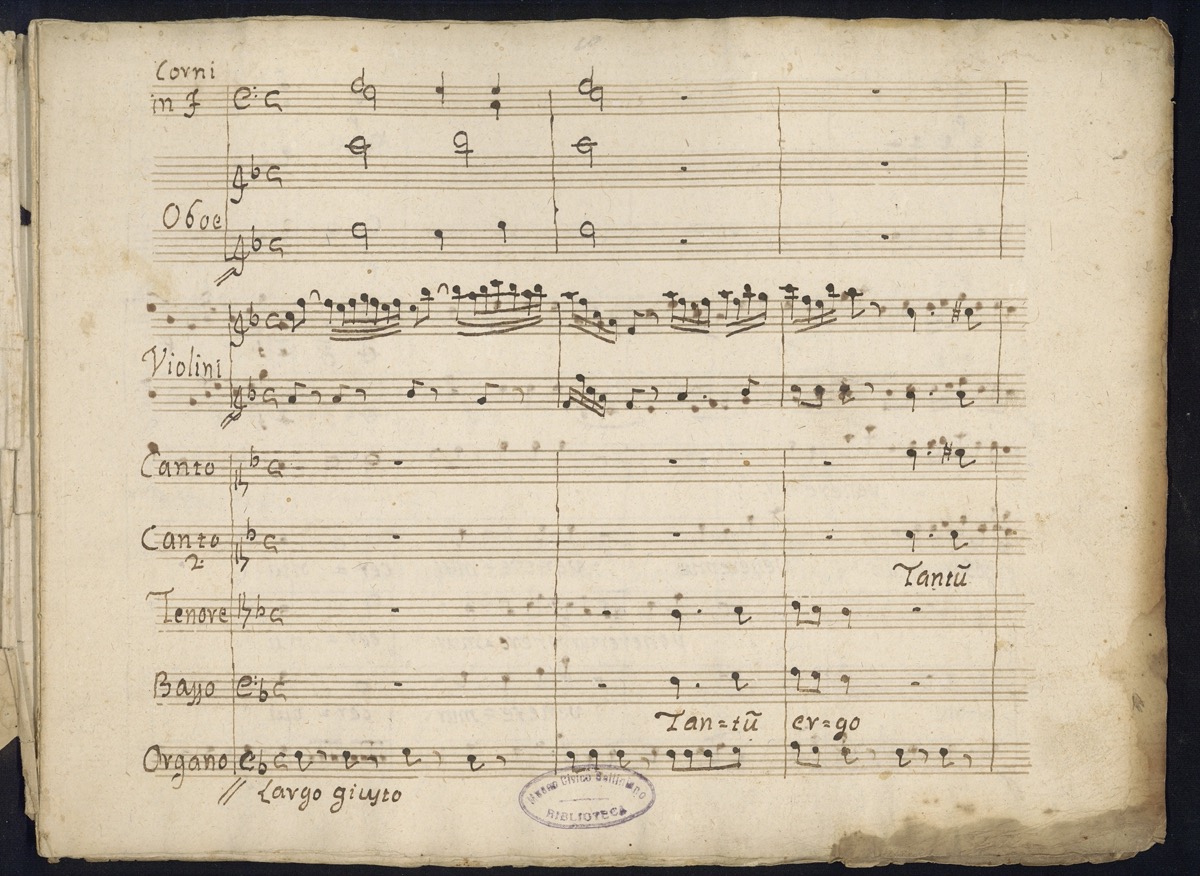 Corni
in F
Oboe
Violini
Canto
Canto
2.
Tantũ
Tenore
Basso
Tan=tũ er=go
Organo
Largo giusto
Museo Civico
BIBLIOTECA